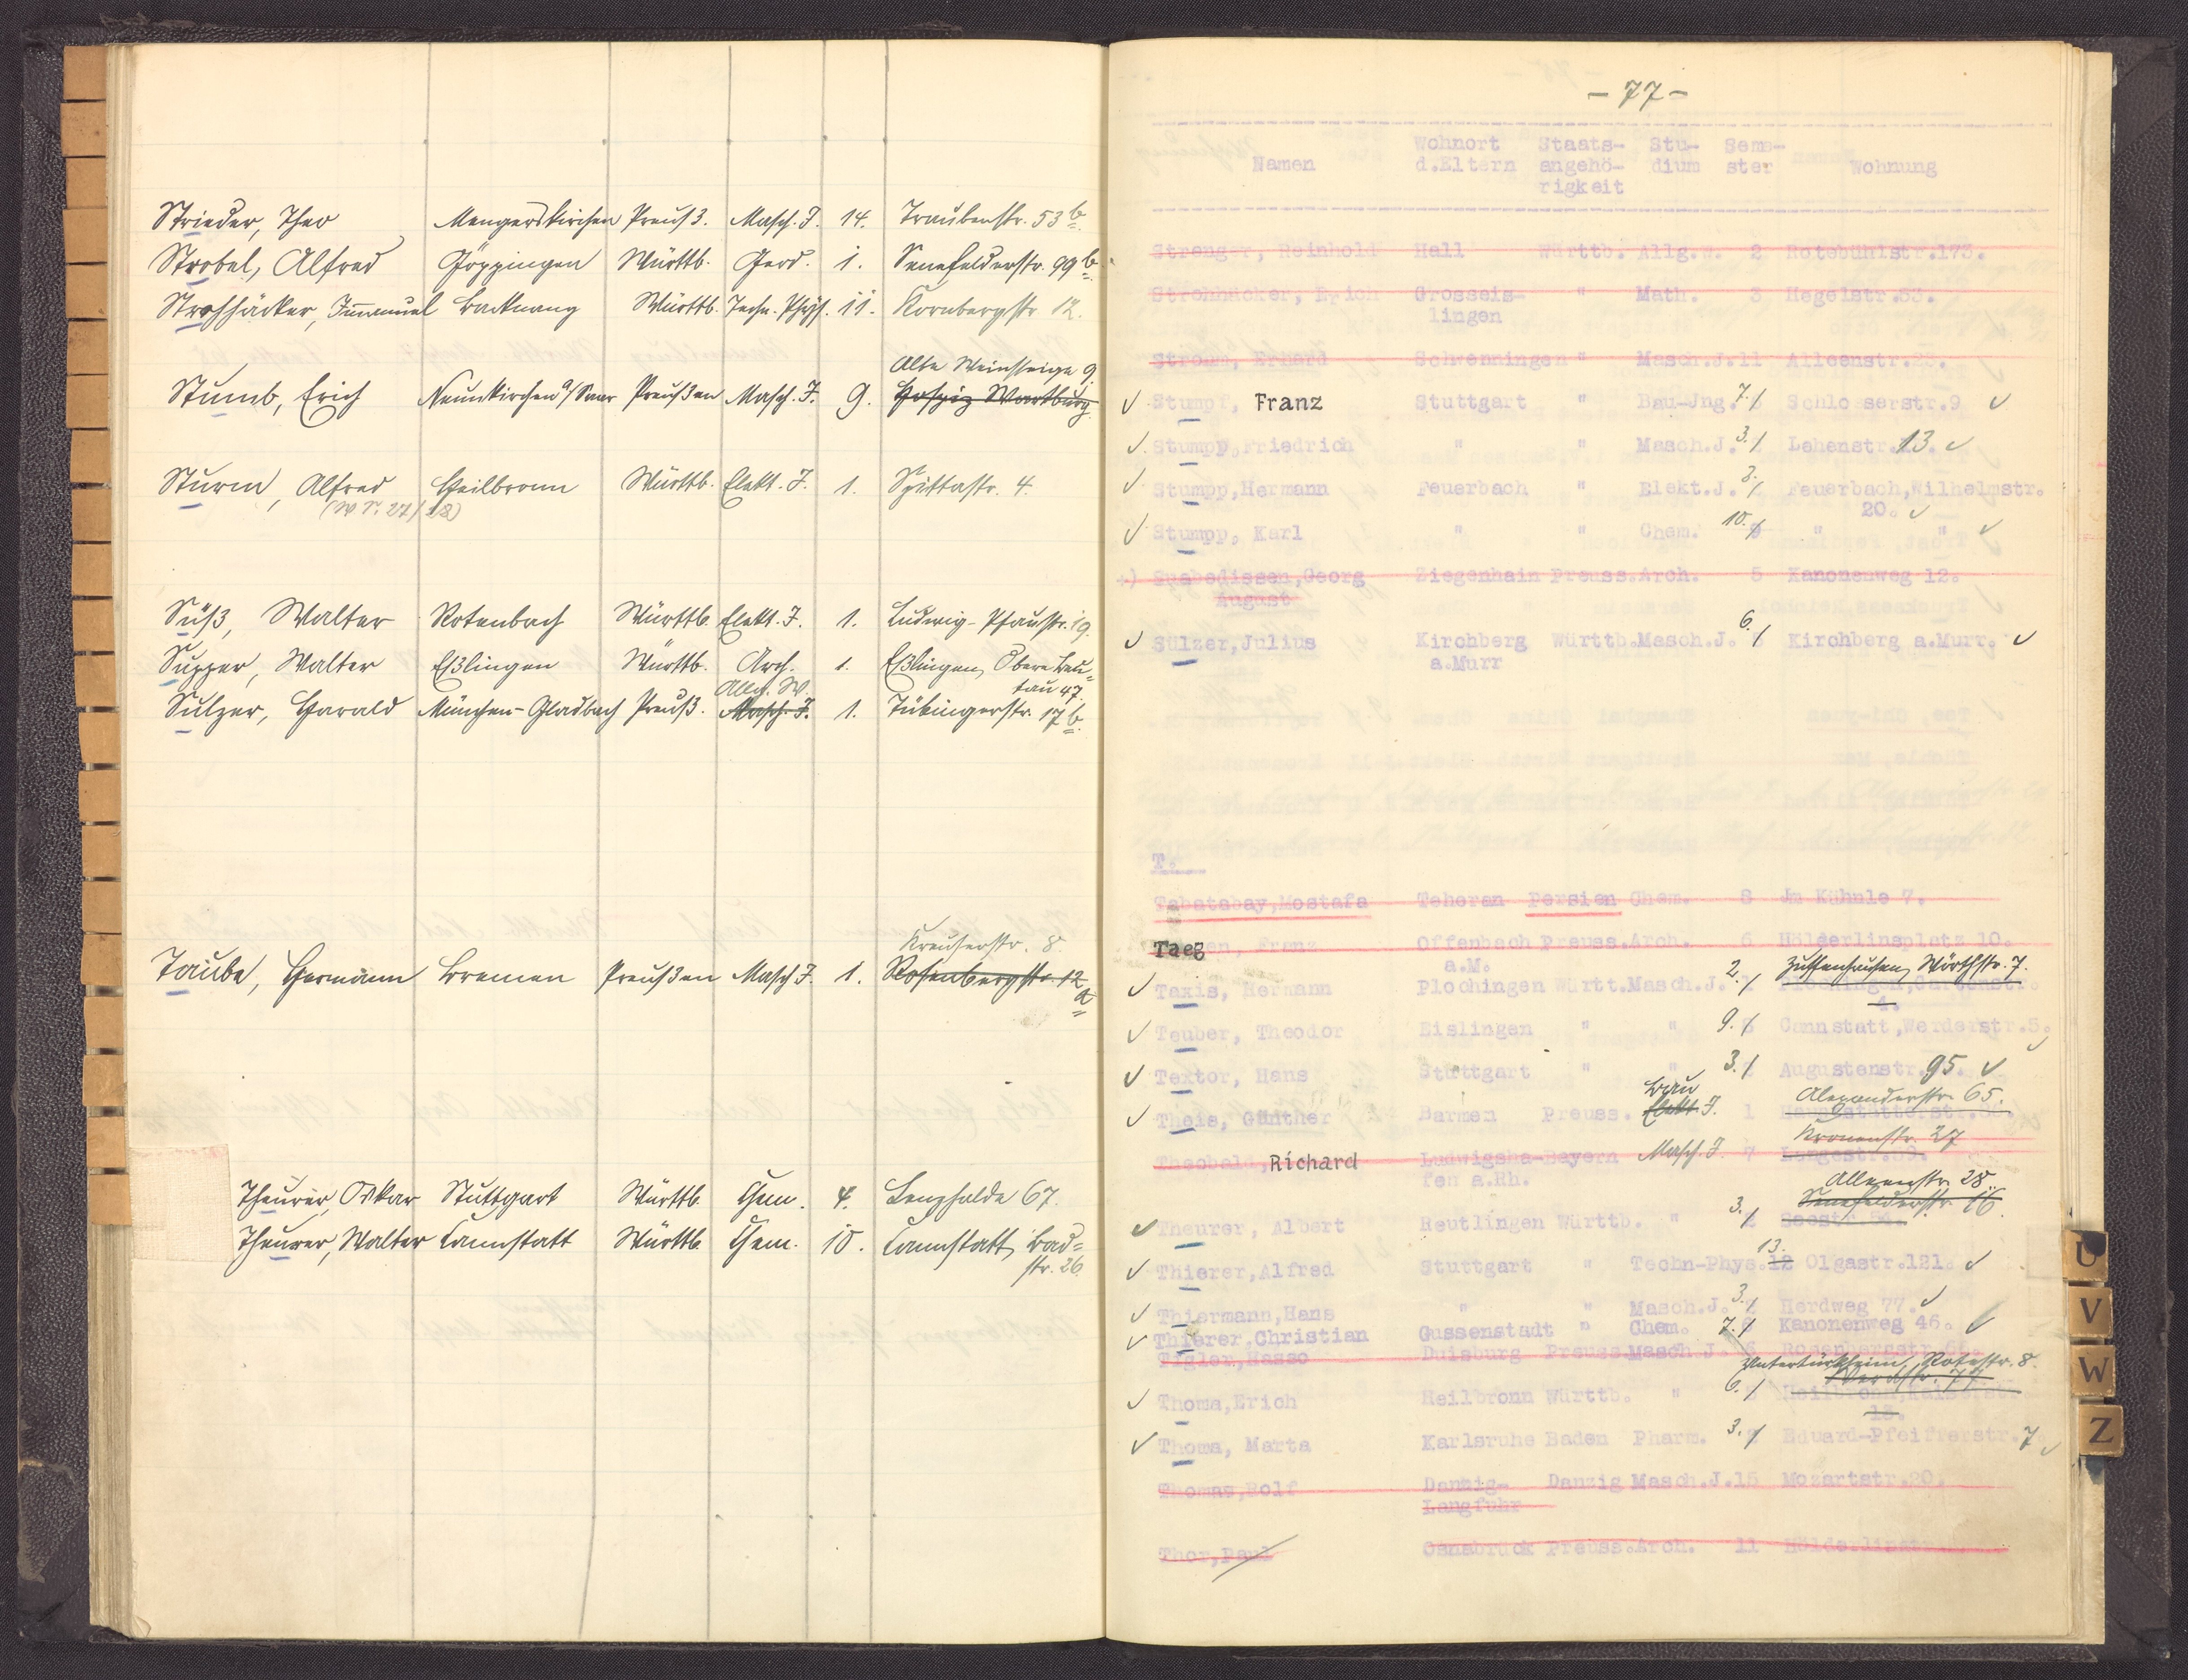 Strieder, Theo Mengerskirchen Preuß. Masch. J. 14. Traubenstr. 53 b.
Strobel, Alfred Göppingen Württb. Geod. 1. Senefelderstr. 99 b.
Strohhäcker, Immanuel Backnang Württb. Techn. Phys. 11. Kornbergstr. 12.
Alte Weinsteige 9.
Stumb, Erich Neunkirchen a/Saar Preußen Masch. J. 9. Hospiz Wartburg
Sturm, Alfred Heilbronn Württb. Elekt. J. 1. Spittastr. 4.
(W S. 27/28)
Süß, Walter Rotenbach Württb. Elekt. J. 1. Ludwig-Pfaustr. 19.
Supper, Walter Eßlingen Württb. Arch. 1. Eßlingen, Obere Beu=
Allg. W. tau 47.
Sulzer, Harald München-Gladbach Preuß. Masch. J. 1. Tübingerstr. 17 b.
Kreuserstr. 8.
Taube, Hermann Bremen Preußen Masch. J. 1. Rosenbergstr. 12
a
Theurer, Oskar Stuttgart Württb. Chem. 4. Lenzhalde 67.
Theurer, Walter Cannstatt Württb. Chem. 10. Cannstatt, Bad=
str. 26.
- 77 -
Wohnort Staats- Stu- Seme-
Namen d.Eltern angehö- dium ster Wohnung
rigkeit
Strenger, Reinhold Hall Württb. Allg.W. 2 Rotebühlstr.173.
Strohhäcker, Erich Grosseis- " Math. 3 Hegelstr.53.
lingen
Strohm, Erhard Schwenningen " Masch.J. 11 Alleenstr.23.
Stumpf, Franz Stuttgart " Bau-Jng. 7. Schlosserstr.9
Stumpp, Friedrich " " Masch.J. 3. Lehenstr. 13.
Stumpp, Hermann Feuerbach " Elekt.J. 3. Feuerbach, Wilhelmstr.
20.
Stumpp, Karl " " Chem. 10. 9 " "
Suabedissen, Georg Ziegenhain Preuss. Arch. 5 Kanonenweg 12.
August
Sülzer, Julius Kirchberg Württb. Masch.J. 6. Kirchberg a.Murr.
a.Murr
T.
Tabatabay, Mostafa Teheran Persien Chem. 8 Jm Kühnle 7.
Taegen, Franz Offenbach Preuss. Arch. 6 Hölderlinsplatz 10.
a.M. Zuffenhausen, Wörthstr. 7.
Taxis, Hermann Plochingen Württ. Masch.J. 2. 1 Plochingen, Gartenstr.
4.
Teuber, Theodor Eislingen " " 9. Cannstatt, Werderstr.5.
Textor, Hans Stuttgart " " 3. Augustenstr. 95.
Bau Alexanderstr. 65.
Theis, Günther Barmen Preuss. Elekt. J. 1
Kronenstr. 27
Theobald, Richard Ludwigsha- Bayern Masch. J. 7 Langestr.
fen a.Rh.
Alleenstr. 28.
Senefelderstr. 16.
Theurer, Albert Reutlingen Württb. " 3. Seestr.
Thierer, Alfred Stuttgart " Techn-Phys. 13. 12 Olgastr.121.
Thiermann, Hans " " Masch.J. 3. Herdweg 77.
Thierer, Christian Gussenstadt " Chem. 7. Kanonenweg 46.
Tigler, Hasso Duisburg Preuss. Masch.J. 6
Untertürkheim, Rotestr. 8.
Thoma, Erich Heilbronn Württb. " 6.
13.
Thoma, Marta Karlsruhe Baden Pharm. 3. Eduard-Pfeifferstr. 7
Thomas, Rolf Danzig- Danzig Masch.J. 15 Mozartstr.20.
Langfuhr
Thor, Paul Osnabrück Preuss. Arch. 11
U
V
W
Z